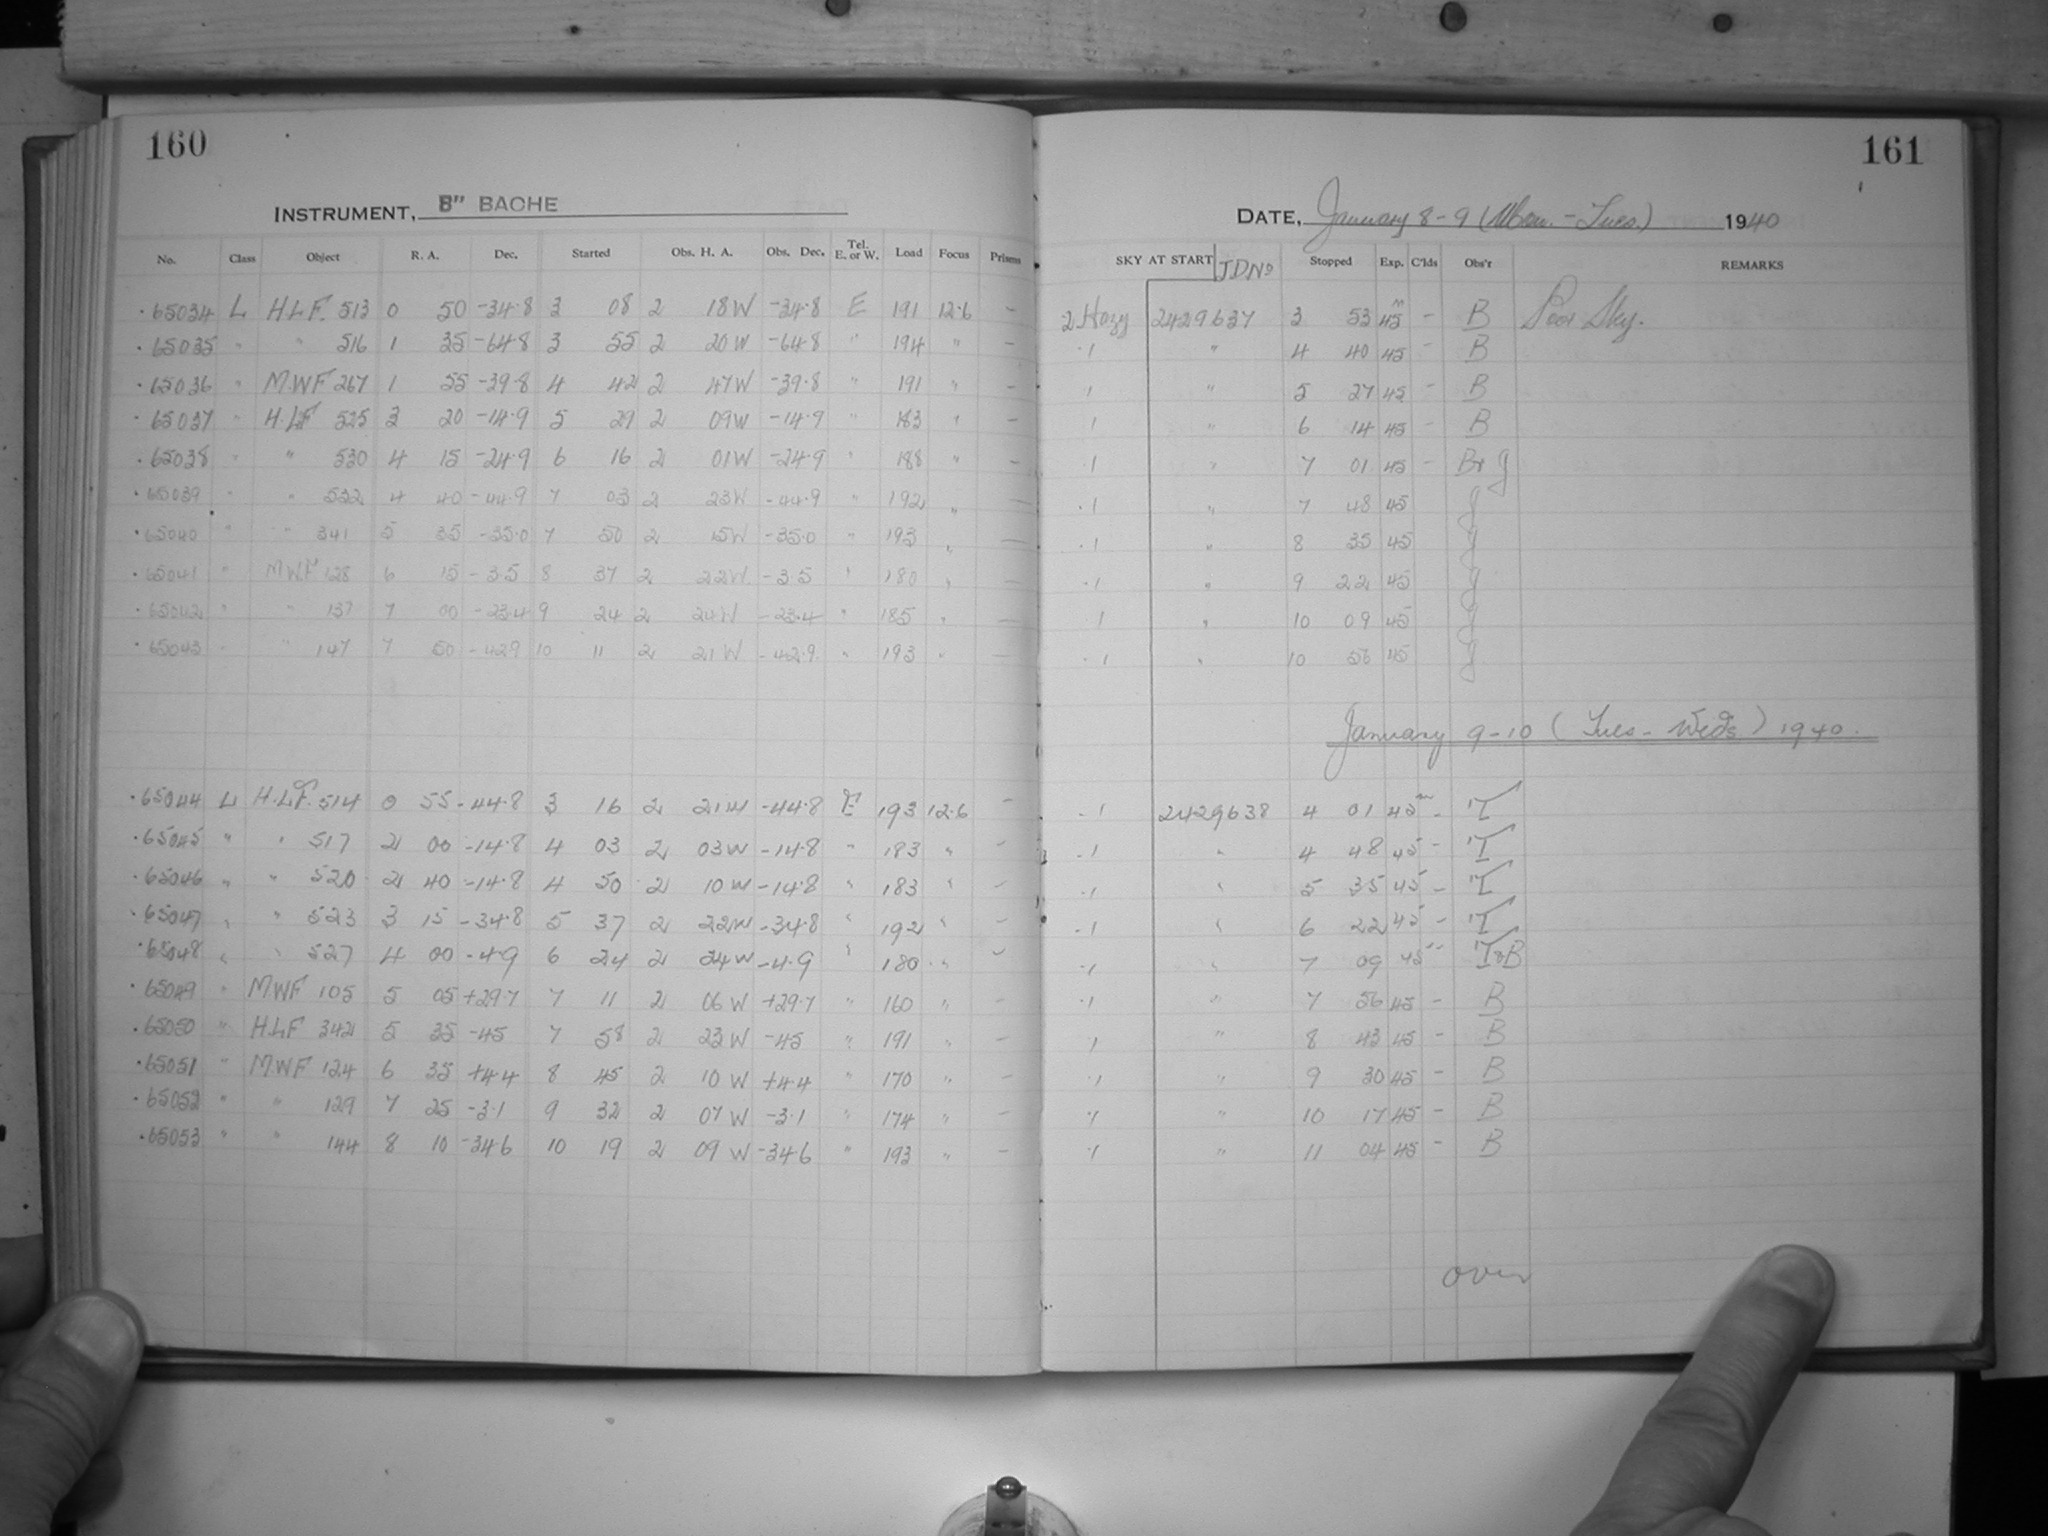 160
INSTRUMENT, 8" BACHE
No. Class Object R. A. Dec. Started Obs. H. A. Obs. Dec. Tel. E. or W. Load Focus Prisms
65034 L H.L.F. 513 0 50 -34.8 3 08 2 18W -34.8 E 191 12.6 -
65035 " " 516 1 35 -64.8 3 55 2 20W -64.8 " 194 " -
65036 " M.W.F 267 1 55 -39.8 4 42 2 47W -39.8 " 191 " -
65037 " H.L.F 525 3 20 -14.9 5 29 2 09W -14.9 " 183 " -
65038 " " 530 4 15 -24.9 6 16 2 01W -24.9 " 188 " -
65039 " " 532 4 40 -44.9 7 03 2 23W -44.9 " 192 " -
65040 " " 341 5 35 -35.0 7 50 2 15W -35.0 " 193 " -
65041 " M.W.F 128 6 15 -3.5 8 37 2 22W -3.5 " 180 " -
65042 " " 137 7 00 -23.4 9 24 2 24W -23.4 " 185 " -
65043 " " 147 7 50 -42.9 10 11 2 21W -42.9 " 193 " -
65044 L H.L.F. 514 0 55 -44.8 3 16 2 21W -44.8 E 193 12.6 -
65045 " " 517 2 00 -14.8 4 03 2 03W -14.8 " 183 " -
65046 " " 520 2 40 -14.8 4 50 2 10W -14.8 " 183 " -
65047 " " 523 3 15 -34.8 5 37 2 22W -34.8 " 192 " -
65048 " " 527 4 00 -4.9 6 24 2 24W -4.9 " 180 " -
65049 " MWF 105 5 05 +29.7 7 11 2 06W +29.7 " 160 " -
65050 " H.L.F 342 5 35 -45 7 58 2 23W -45 " 191 " -
65051 " M.W.F 124 6 35 +4.4 8 45 2 10W +4.4 " 170 " -
65052 " " 129 7 25 -3.1 9 32 2 07W -3.1 " 174 " -
65053 " " 144 8 10 -34.6 10 19 2 09W -34.6 " 193 " -
161
DATE, January 8-9 (Mon. - Tues.) 1940
SKY AT START J.D.No Stopped Exp. C'lds Obs'r REMARKS
2 Hazy 2429637 3 53 45m - B Poor Sky.
.1 " 4 40 45 - B
1 " 5 27 45 - B
1 " 6 14 45 - B
.1 " 7 01 45 - B+J
.1 " 7 48 45 J
.1 " 8 35 45 J
.1 " 9 22 45 J
1 " 10 09 45 J
.1 " 10 56 45 J
January 9-10 (Tues - Weds.) 1940.
.1 2429638 4 01 45m - T
.1 " 4 48 45 - T
.1 " 5 35 45 - T
.1 " 6 22 45 - T
.1 " 7 09 45 - T&B
.1 " 7 56 45 - B
1 " 8 43 45 - B
.1 " 9 30 45 - B
.1 " 10 17 45 - B
.1 " 11 04 45 - B
over